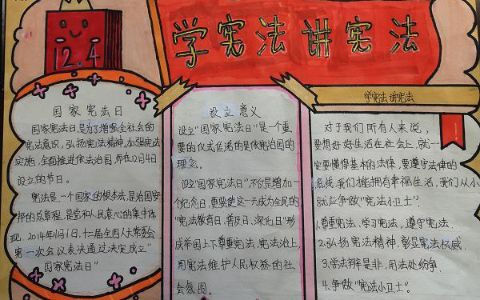 12.4
学宪法讲宪法
国家宪法日
国家宪法日是为了增强全社会的
宪法意识，弘扬宪法精神，加强宪法
实施，全面推进依法治国，即在12月4日
设立的节日。
宪法是一个国家的根本法，是治国安
邦的总章程，是党和人民意志的集中体
现，2014年11月1日，十二届全国人大常委会
第一次会议表决通过决定设立“
国家宪法日”
设立意义
设立“国家宪法日”是一个重
要的仪式传递的是依宪治国的
理念。
设“国家宪法日”不仅是增加一
个纪念日，更要使这一天成为全民的
“宪法教育日、普及日、深化日”形
成举国上下尊重宪法、宪法治上，
用宪法维护人民权益的社
会氛围。
学宪法讲宪法
对于我们所有人来说，
要想好好生活在社会上，就一
定要懂得基本的法律，要遵守法律的
我们能拥有幸福生活，我们从小
就应争做“宪法小卫士”。
1.尊重宪法、学习宪法，遵守宪法
2.弘扬宪法精神，彰显宪法权威
3.学法辩是非，用法处纷争
4.争做“宪法小卫士”。